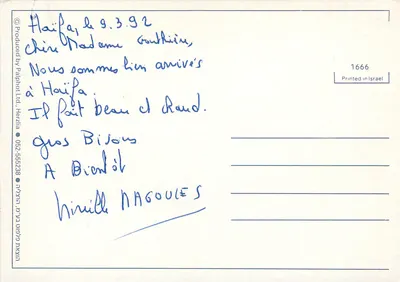 Haïfa, le 9.3.92
Chère Madame Gouthier,
Nous sommes bien arrivés
à Haïfa.
Il fait beau et chaud.
gros Bisous
A Bientôt
Mireille MAGOULES
1666
Printed in Israel
© Produced by Palphot Ltd. Herzlia ● 052-555238 ●